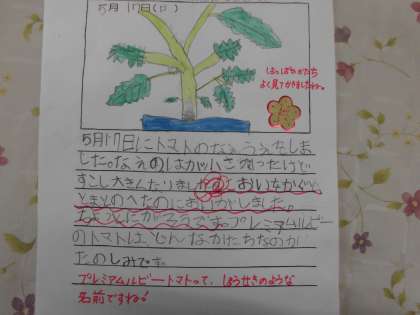 5月17日(日)
はっぱのかたち
よく見てかけましたね。
5月17日にトマトのなえうえをしま
した。なえのはかハさ
すこし大きん
とまとのへたのにおいがしました。
です。プレミアムルビー
のトマトは、どんなかたちなのか
たのしみです。
プレミアムルビートマトって、ほうせきのような
名前ですね!